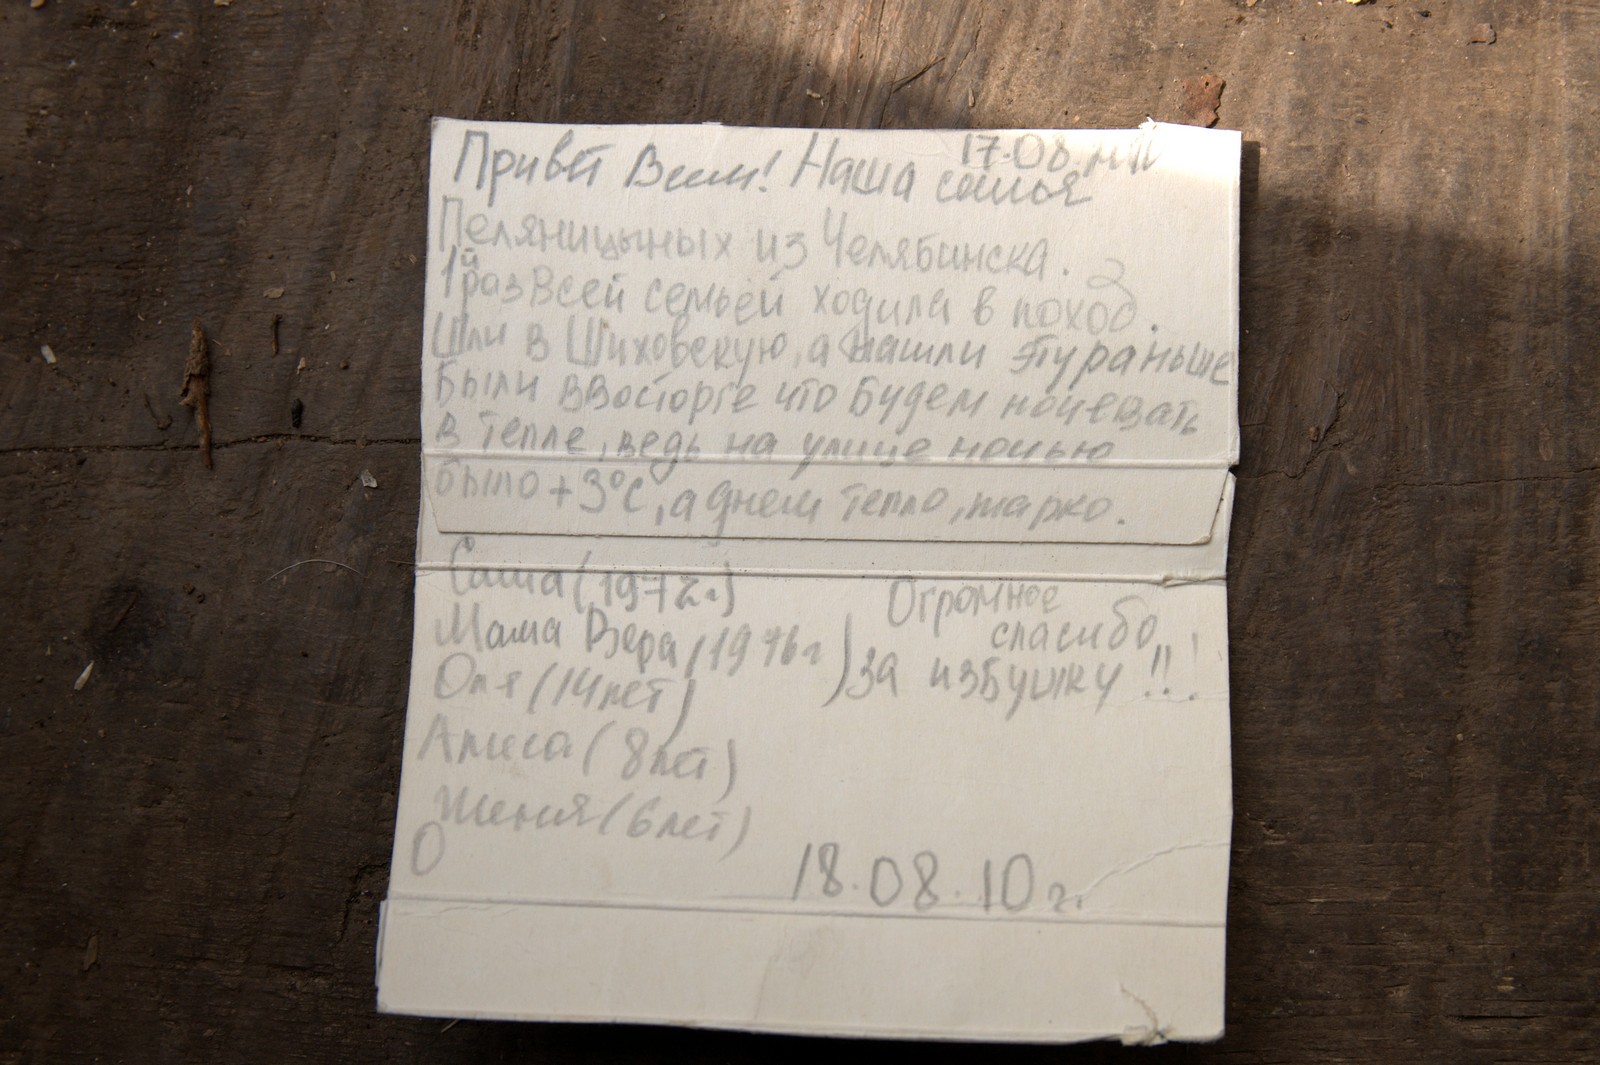 17.08.
Привет Всем! Наша семья
Пеляницыных из Челябинска.
1й раз всей семьёй ходила в поход.
Шли в Шиховскую, а нашли эту раньше
Были в восторге что будем ночевать
в тепле, ведь на улице ночью
было +3°С, а днем тепло, жарко.
Саша (1972г.)
Мама Вера (1976г)
Оля (14лет)
Алиса (8лет)
Женя (6лет)
Огромное
спасибо
за избушку!!!
18.08.10г.